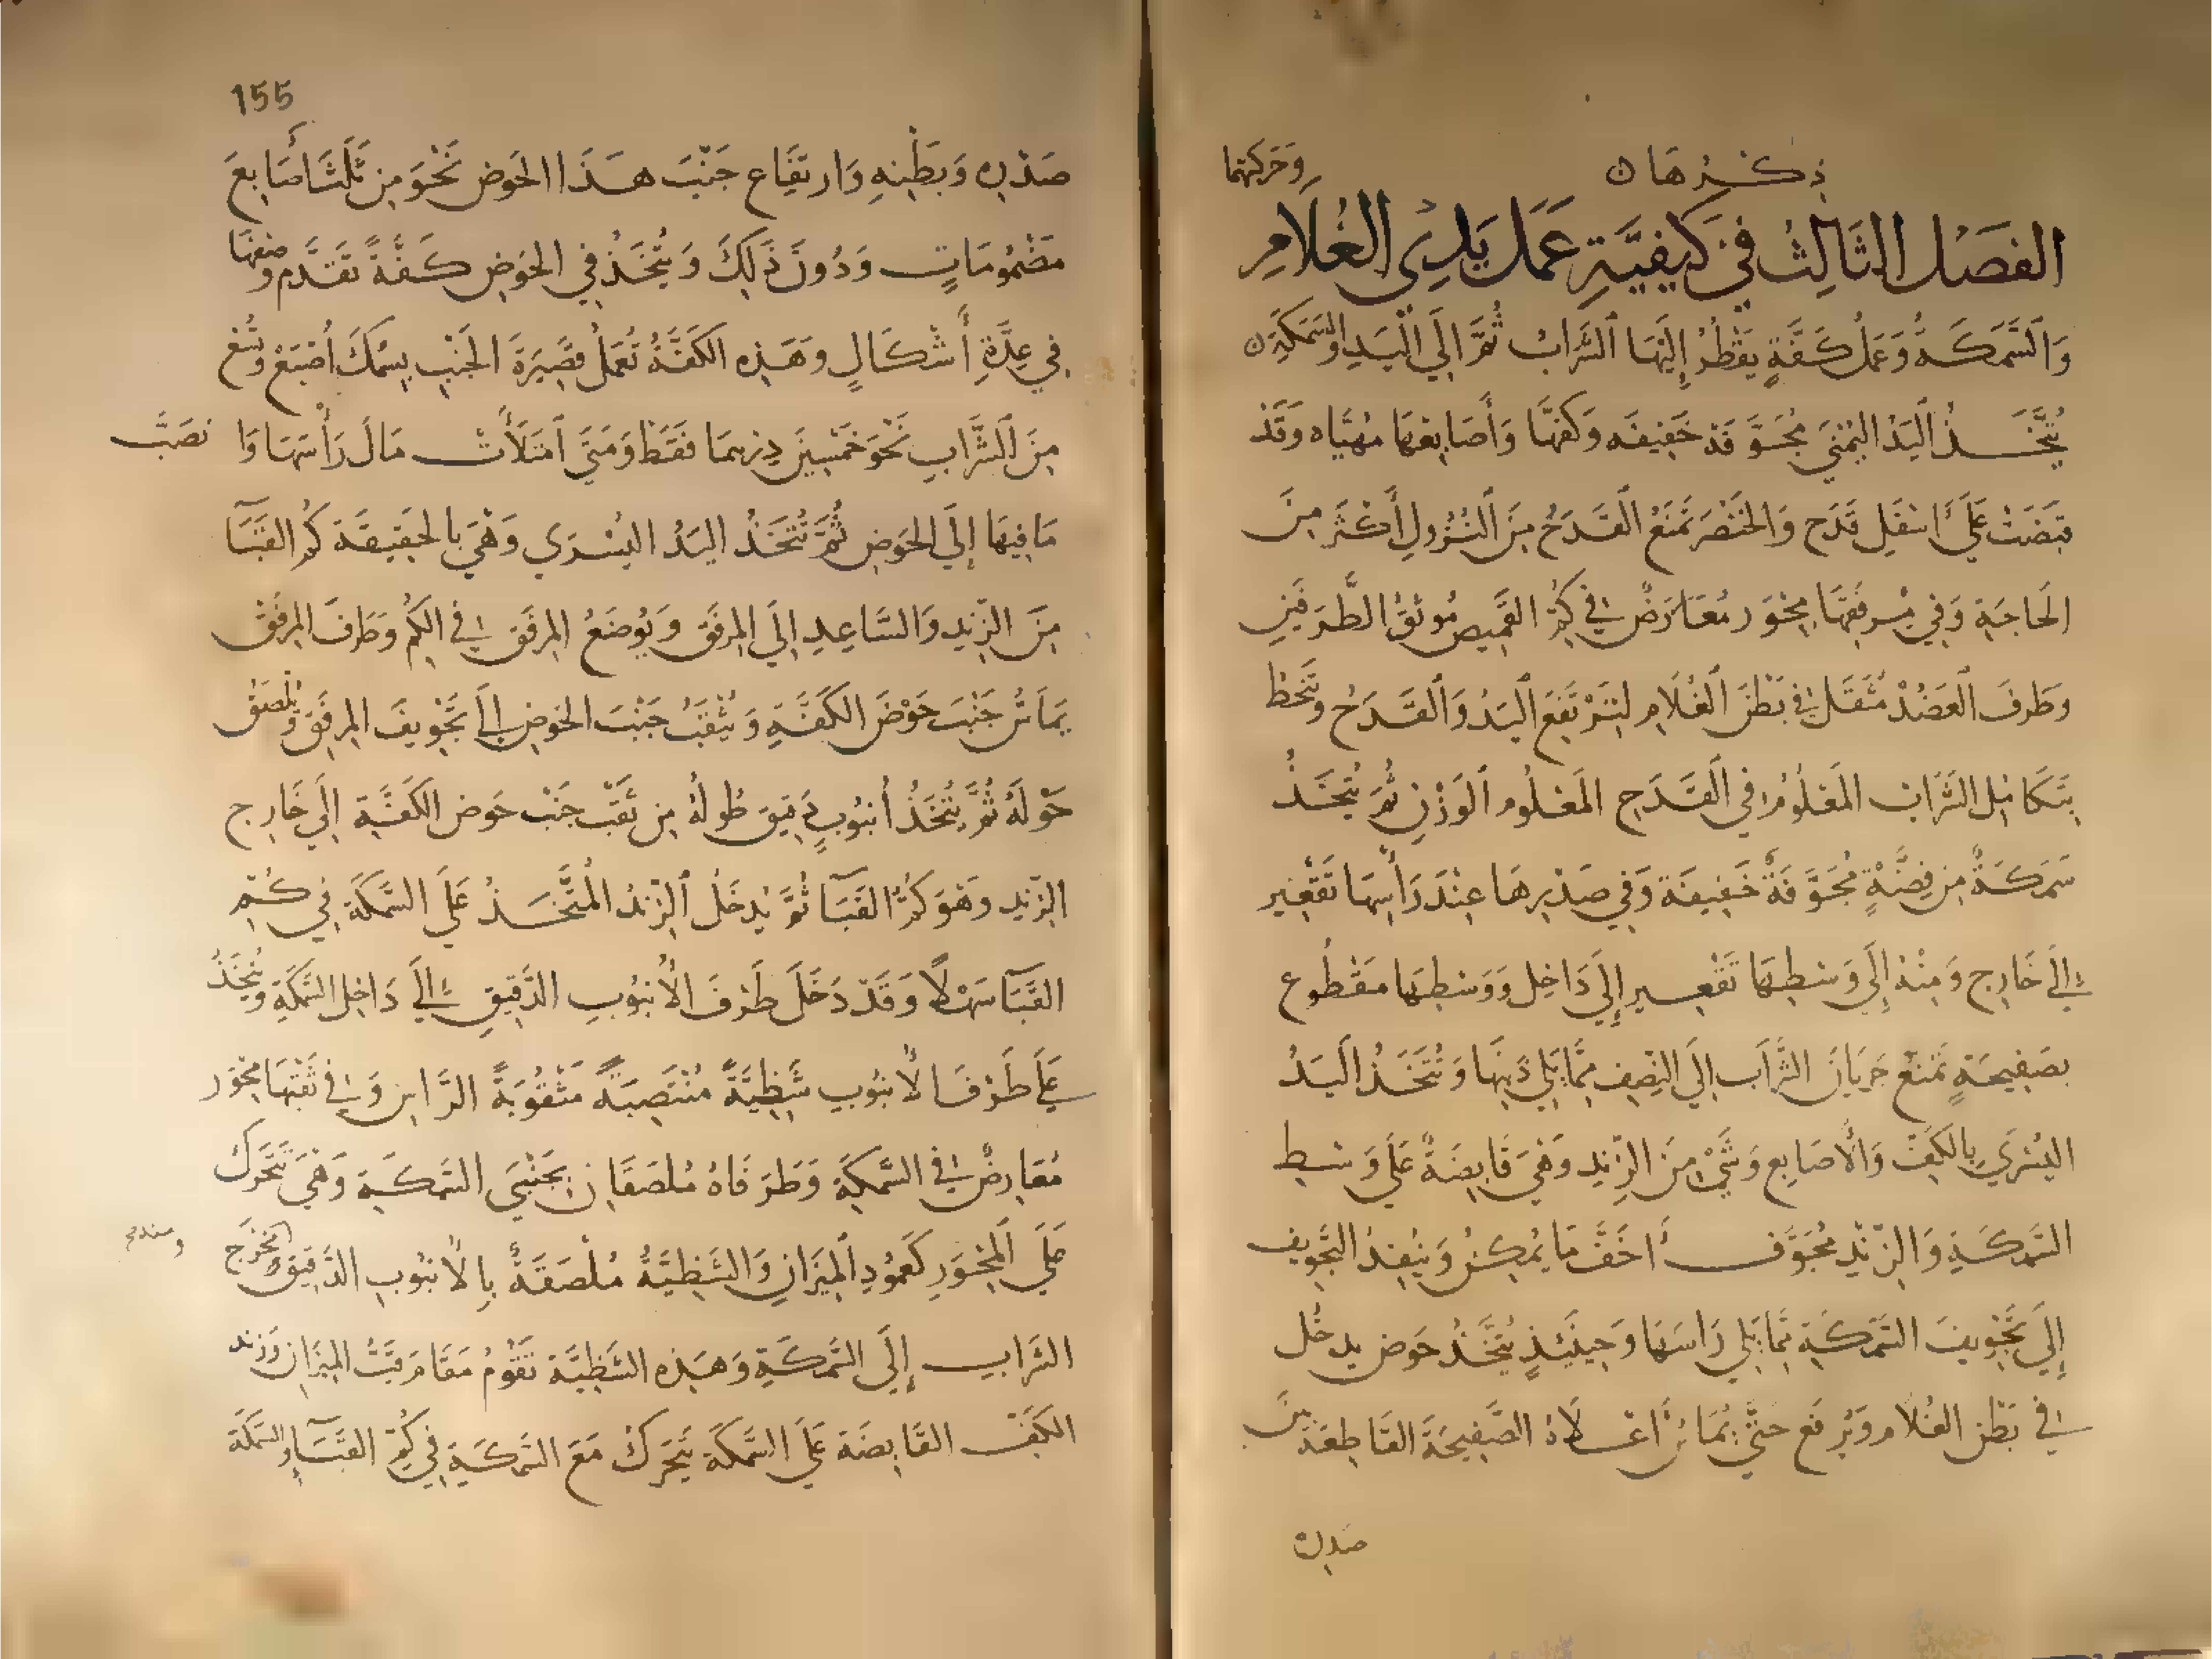 ذكرها ٥
الفصل الثالث في كيفيّة عمل يدي الغلام وحركتهما
والسّمكة وعمل كفّة يقطر إليها الشراب ثمّ الي اليد والسمكة ٥
يتّخذ اليد اليمني مجوّفة خفيفه وكفها وأصابعها مهيّاه وقد
قبضت علي اسفل قدح والخنصر تمنع القدح من النزول أكثر من
الحاجة وفي مرفقها محور معارض في كم القميص موثق الطرفين
وطرف العضد مثقل في بطن الغلام لترتفع اليد والقدح وتنحط
بتكامل الشراب المعلوم في القدح المعلوم الوزن ثم يتخذ
سمكة من فضّة مجوّفة خفيفة وفي صدرها عند رأسها تقعير
إلي خارج ومنه إلي وسطها تقعير إلي داخل ووسطها مقطوع
بصفيحة تمنع جريان الشراب الي النصف مما يلي ذنبها وتتخذ اليد
اليسري بالكف والأصابع وشيء من الزند وهي قابضة علي وسط
السمكة والزند مجوّف أخفّ ما يمكن وينفذ التجويف
إلي تجويف السمكة مما يلي راسها وحينئذ يتخذ حوض يدخل
في بطن الغلام ويرفع حتّي يماس أعلاه الصّفيحة القاطعة بين
صدره
155
صدره وبطنه وارتفاع جنب هذا الحوض نحو من ثلث أصابع
مضمومات ودون ذلك ويتخذ في الحوض كفّة تقدّم وصفها
في عدّة أشكال وهذه الكفة تعمل قصيرة الجنب بسمك أصبع وتسع
من الشراب نحو خمسين درهما فقط ومتي امتلأت مال رأسها وانصبّ
ما فيها إلي الحوض ثمّ تتخذ اليد اليسري وهي بالحقيقة كم القبا
من الزند والساعد الي المرفق ويوضع المرفق في الكم وطرف المرفق
يماس جنب حوض الكفة ويثقب جنب الحوض إلي تجويف المرفق ويلصق
حوله ثمّ يتخذ أنبوب دقيق طوله من ثقب جنب حوض الكفة إلي خارج
الزند وهو كم القبا ثمّ يدخل الزند المتّخذ علي السمكة في كم
القبا سهلاً وقد دخل طرف الأنبوب الدقيق إلي داخل السمكة ويتخذ
علي طرف الأنبوب شظيّةً منتصبةً مثقوبةً الراس وفي ثقبها محور
معارض في السمكة وطرفاه ملصقان بجنبي السمكة وهي تتحرك
علي المحور كعمود الميزان والشظيّة ملصقة بالأنبوب الدقيق ويخرج
الشراب إلي السمكة وهذه الشظيّة تقوم مقام قبّ الميزان وزند
الكف القابضة علي السمكة يتحرك مع السمكة في كم القبا والسمكة